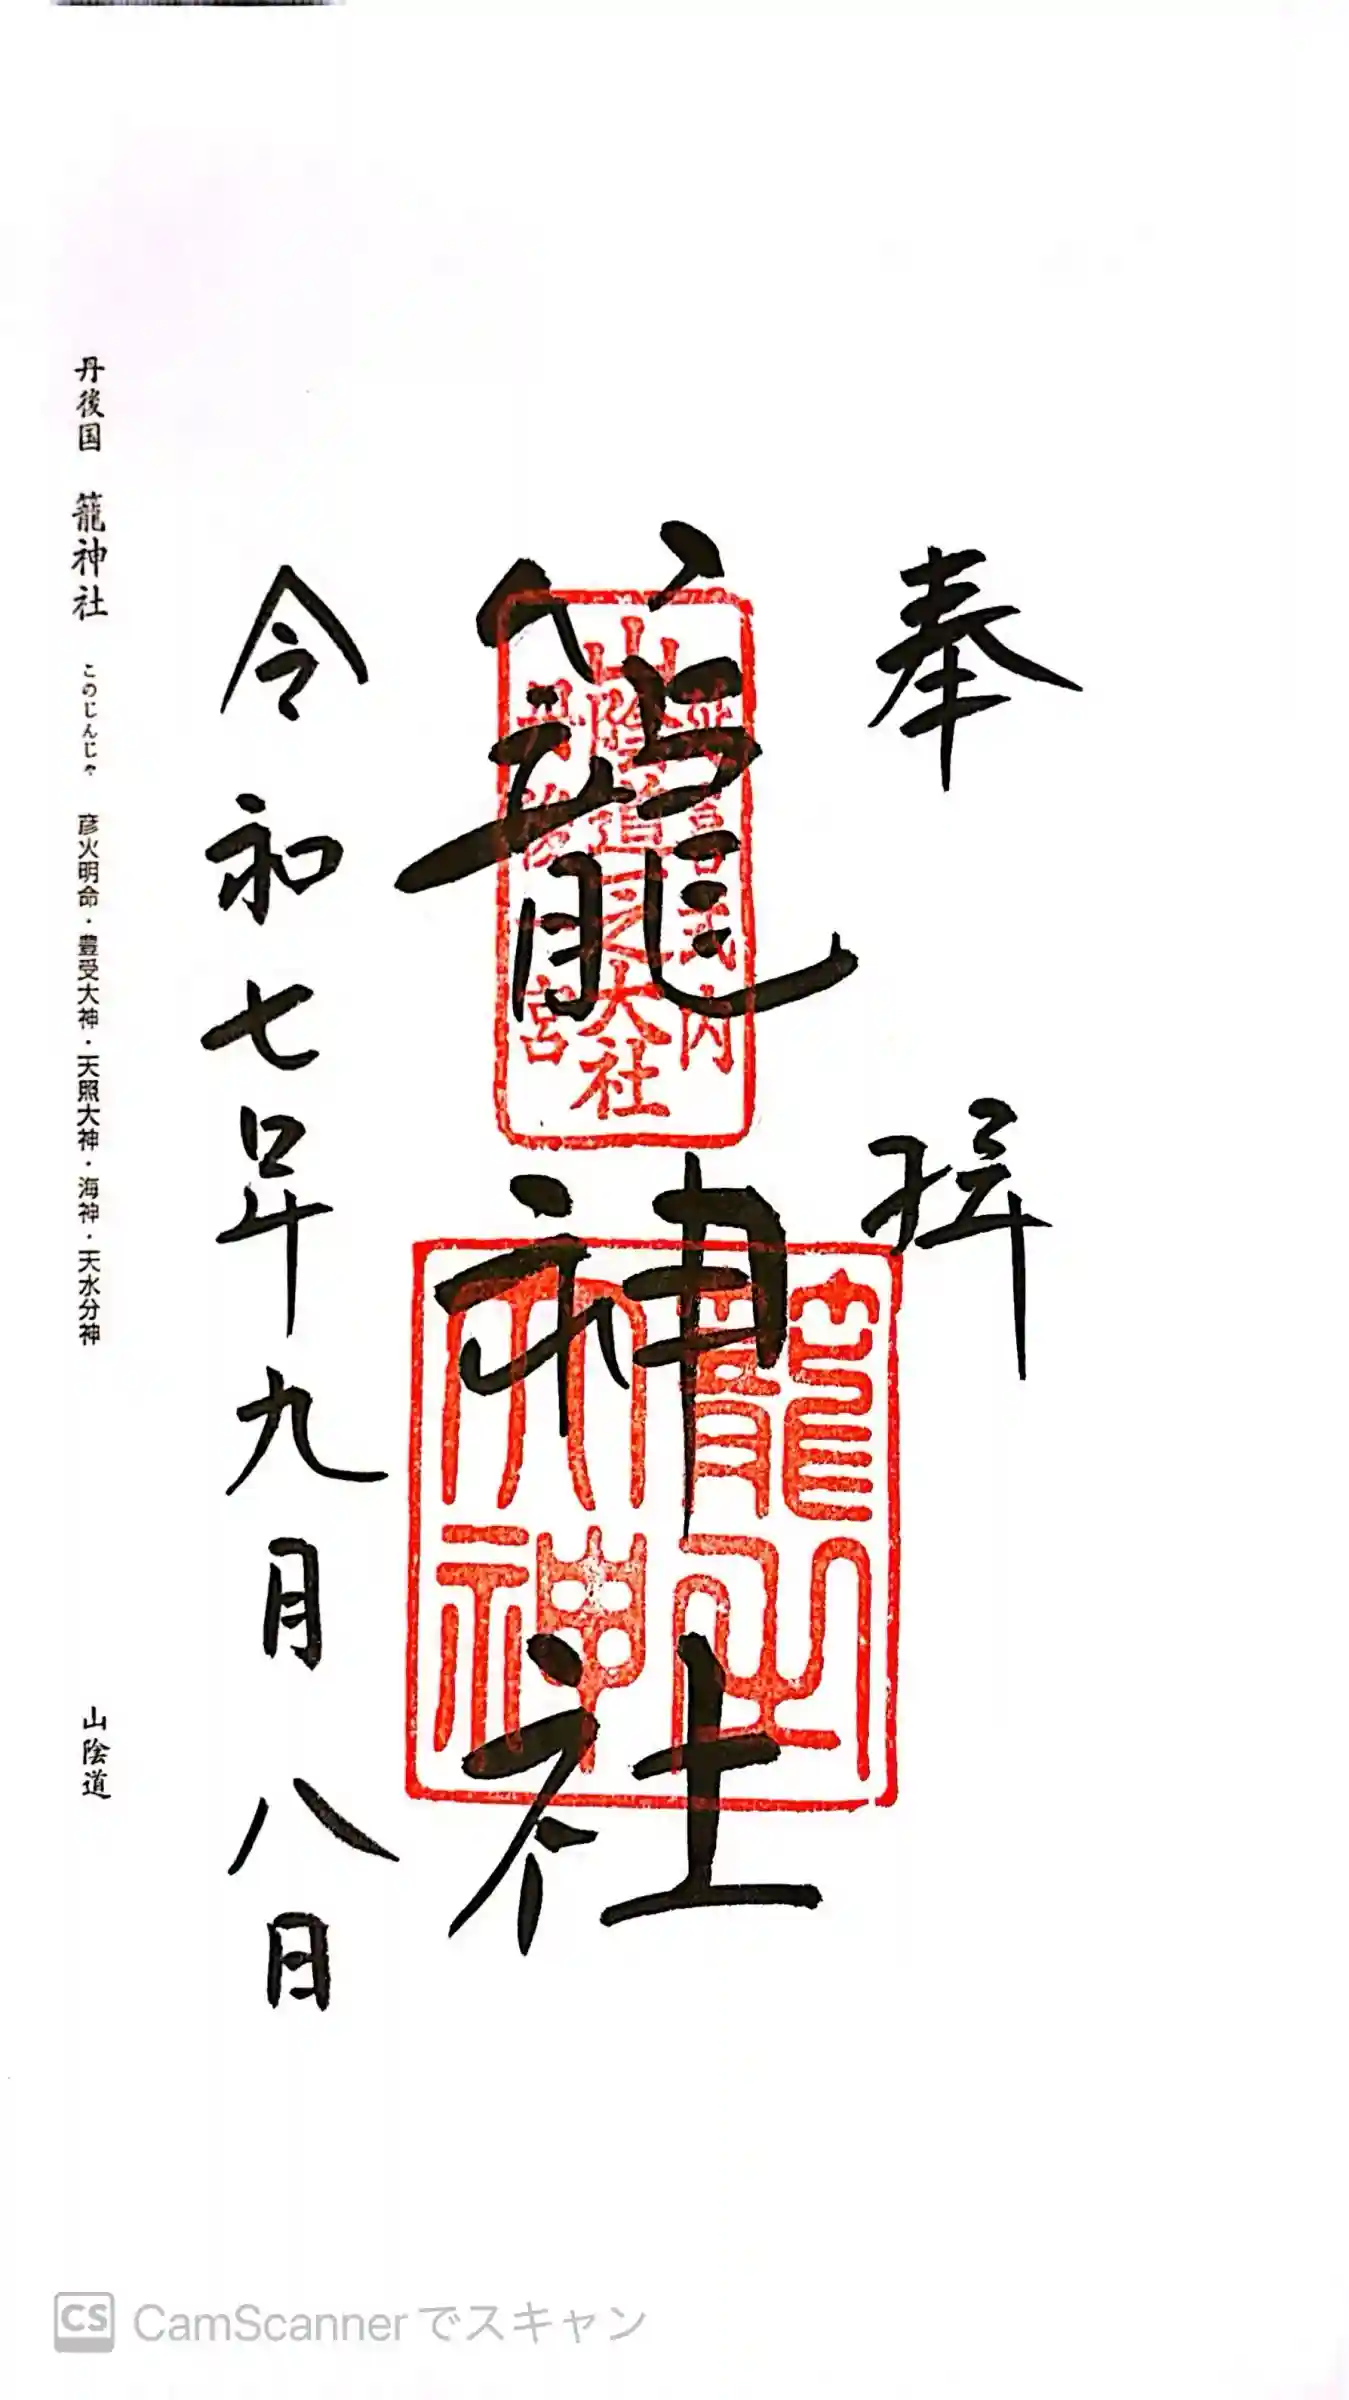 奉拝
籠神社
延喜式内
山陰道一之大社
丹後一宮
籠之大神
令和七年九月八日
丹後国 籠神社 このじんじゃ 彦火明命・豊受大神・天照大神・海神・天水分神 山陰道
CS CamScannerでスキャン